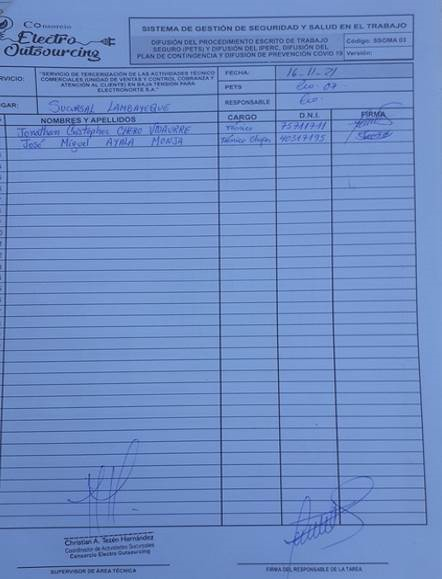 Consorcio
Electro
Outsourcing
SISTEMA DE GESTIÓN DE SEGURIDAD Y SALUD EN EL TRABAJO
DIFUSIÓN DEL PROCEDIMIENTO ESCRITO DE TRABAJO
SEGURO (PETS) Y DIFUSIÓN DEL IPERC, DIFUSIÓN DEL
PLAN DE CONTINGENCIA Y DIFUSIÓN DE PREVENCIÓN COVID 19
Código: SSOMA 03
Versión:
RVICIO:
"SERVICIO DE TERCERIZACIÓN DE LAS ACTIVIDADES TÉCNICO
COMERCIALES (UNIDAD DE VENTAS Y CONTROL COBRANZA Y
ATENCIÓN AL CLIENTE) EN BAJA TENSIÓN PARA
ELECTRONORTE S.A."
FECHA: 16-11-21
PETS Eco-07
GAR: SUCURSAL LAMBAYEQUE
RESPONSABLE Eco.
NOMBRES Y APELLIDOS CARGO D.N.I. FIRMA
Jonathan Chistopher CHERO VIDAURRE Técnico 75711711
José Miguel AYALA MONJA Técnico Chofer 40317195
Christian A. Tezén Hernández
Coordinador de Actividades Sucursales
Consorcio Electro Outsourcing
SUPERVISOR DE ÁREA TÉCNICA
FIRMA DEL RESPONSABLE DE LA TAREA